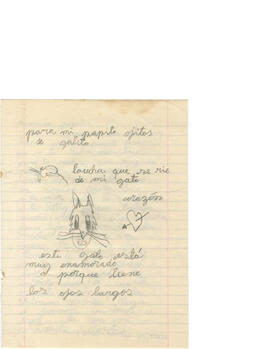 para mi papito ojitos
de gatito
laucha que se rie
de mi gato
corazón
este gato está
muy enamorado
porque tiene
los ojos largos